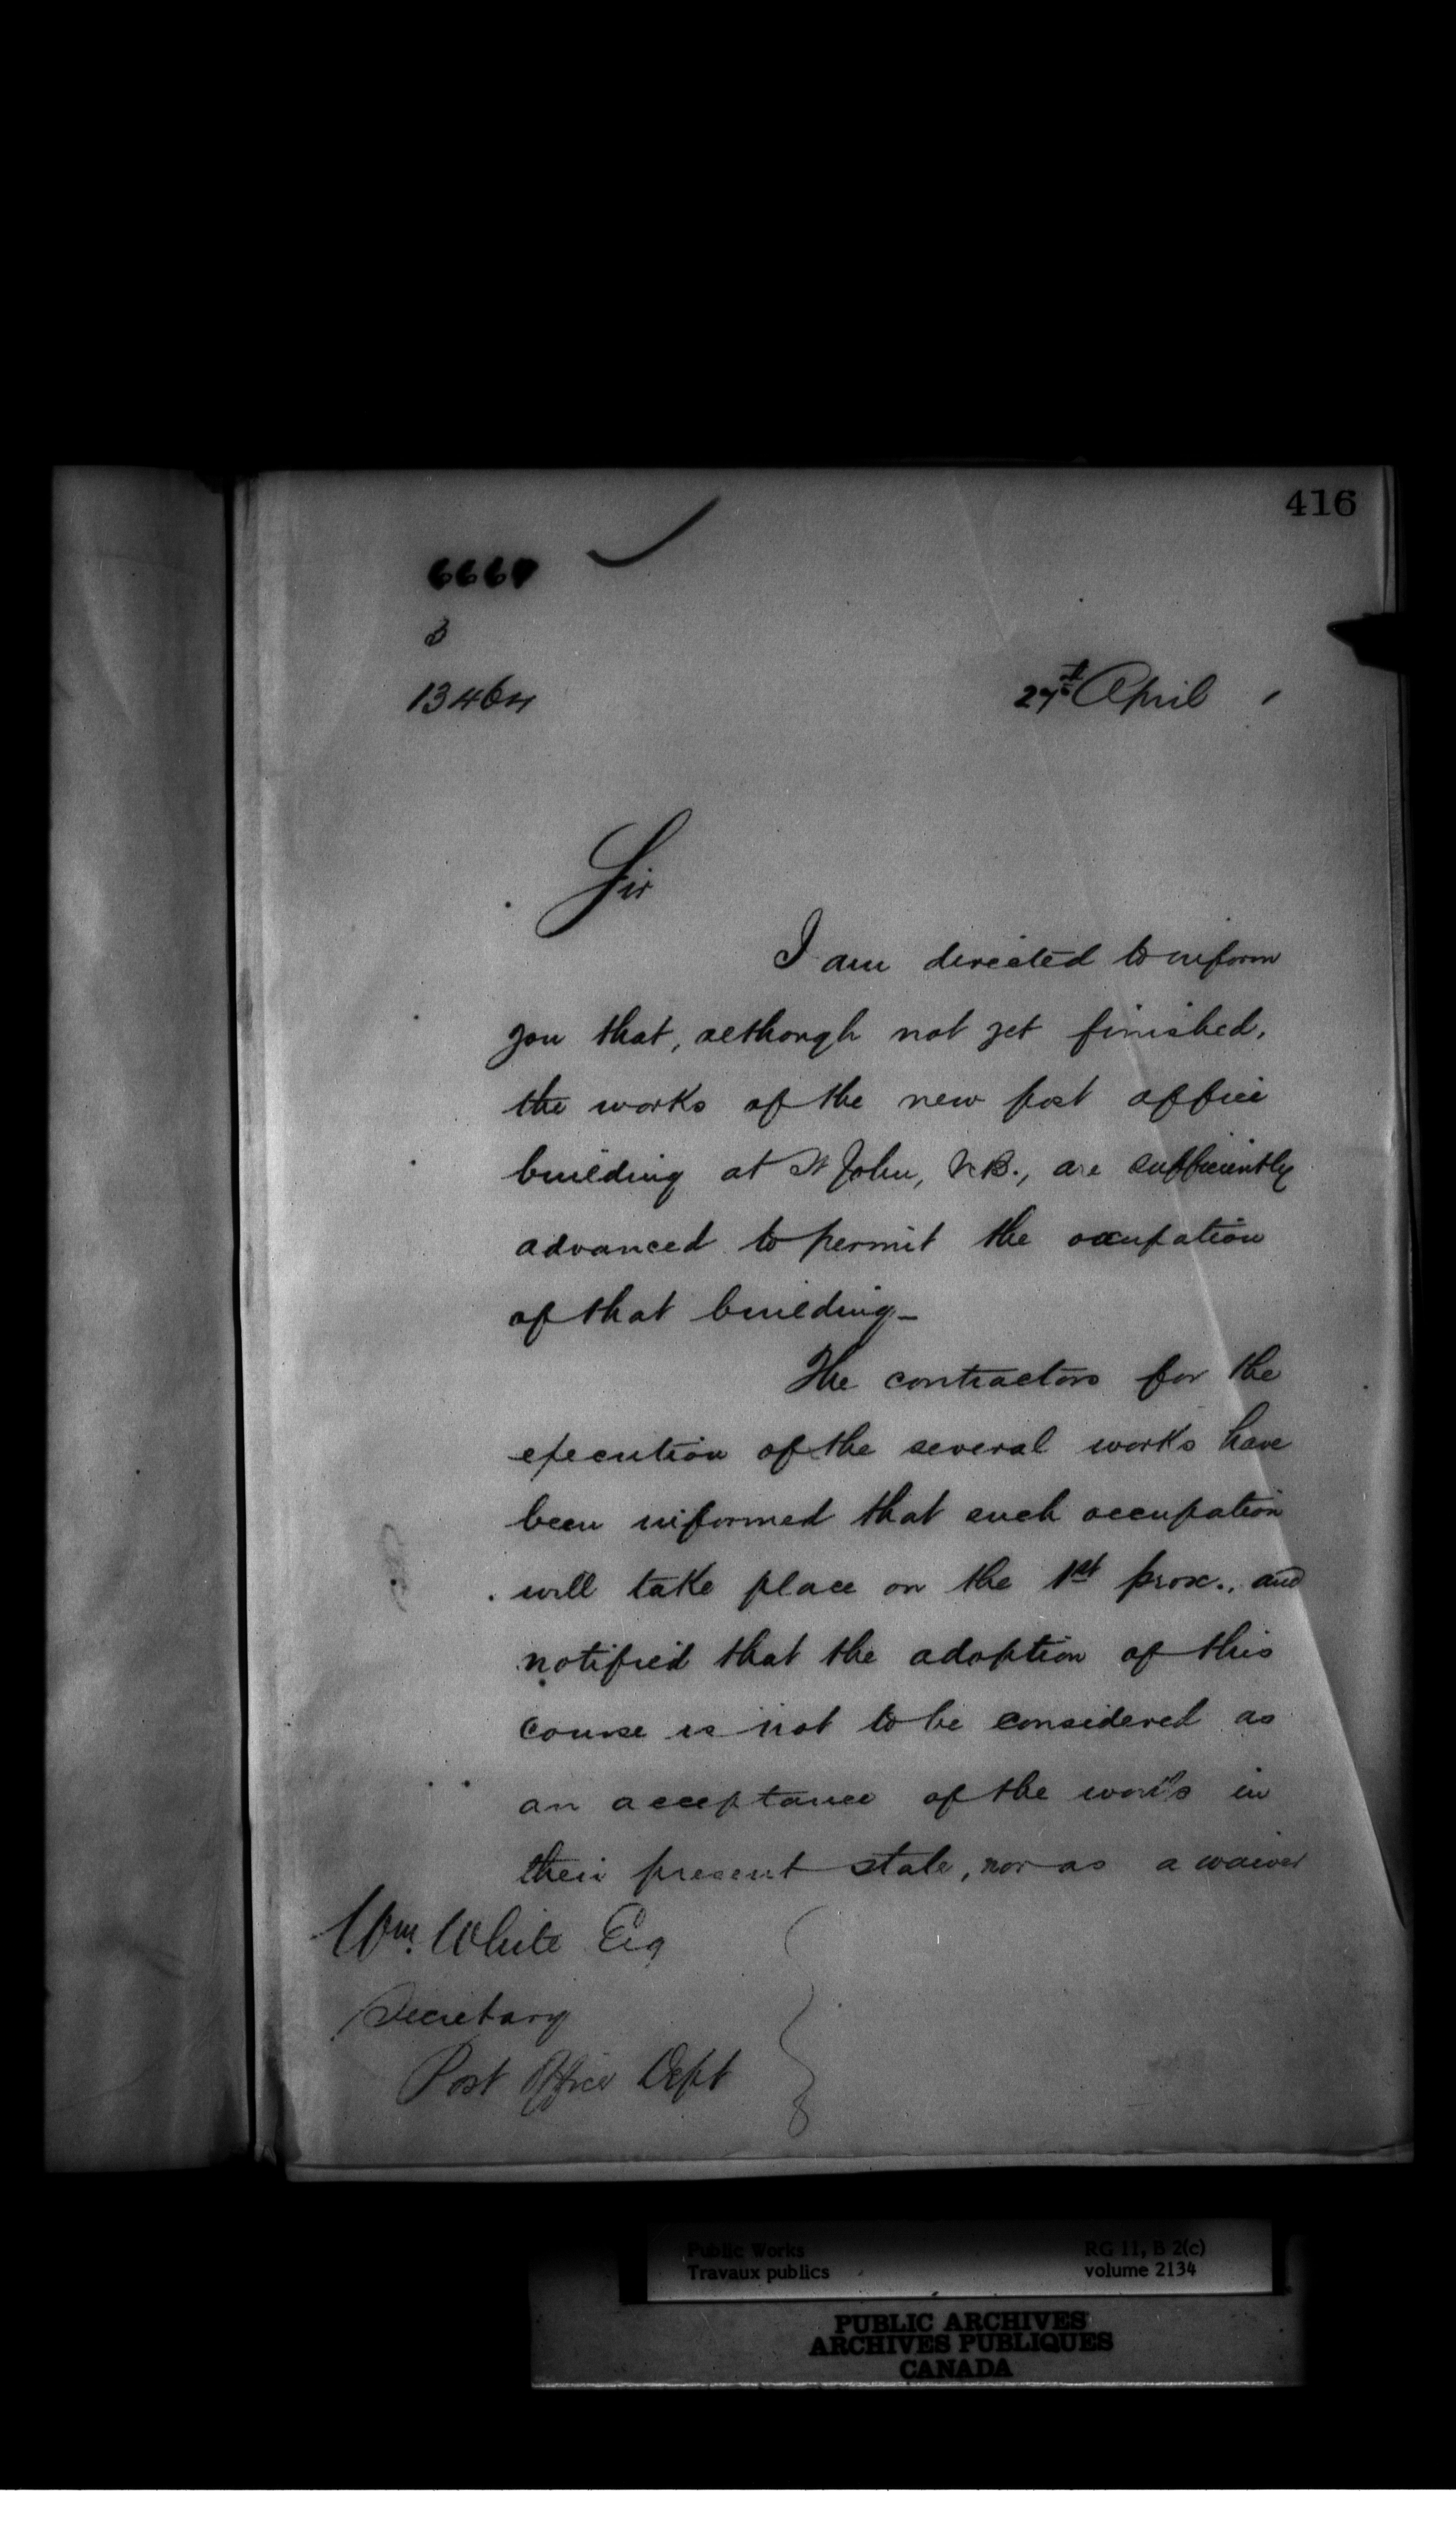 416
666
13464
27th April
Sir
I am directed to inform
you that, although not yet finished,
the works of the new post office
building at St John, N.B., are sufficiently
advanced to permit the occupation
of that building_
The contractors for the
execution of the several works have
been informed that such occupation
will take place on the 1st prox., and
notified that the adoption of this
course is not to be considered as
an acceptance of the works in
their present state, nor as a waiver
Wm. White Esq
Secretary
Post Office Dept
Public Works RG 11, B 2(c)
Travaux publics volume 2134
PUBLIC ARCHIVES
ARCHIVES PUBLIQUES
CANADA